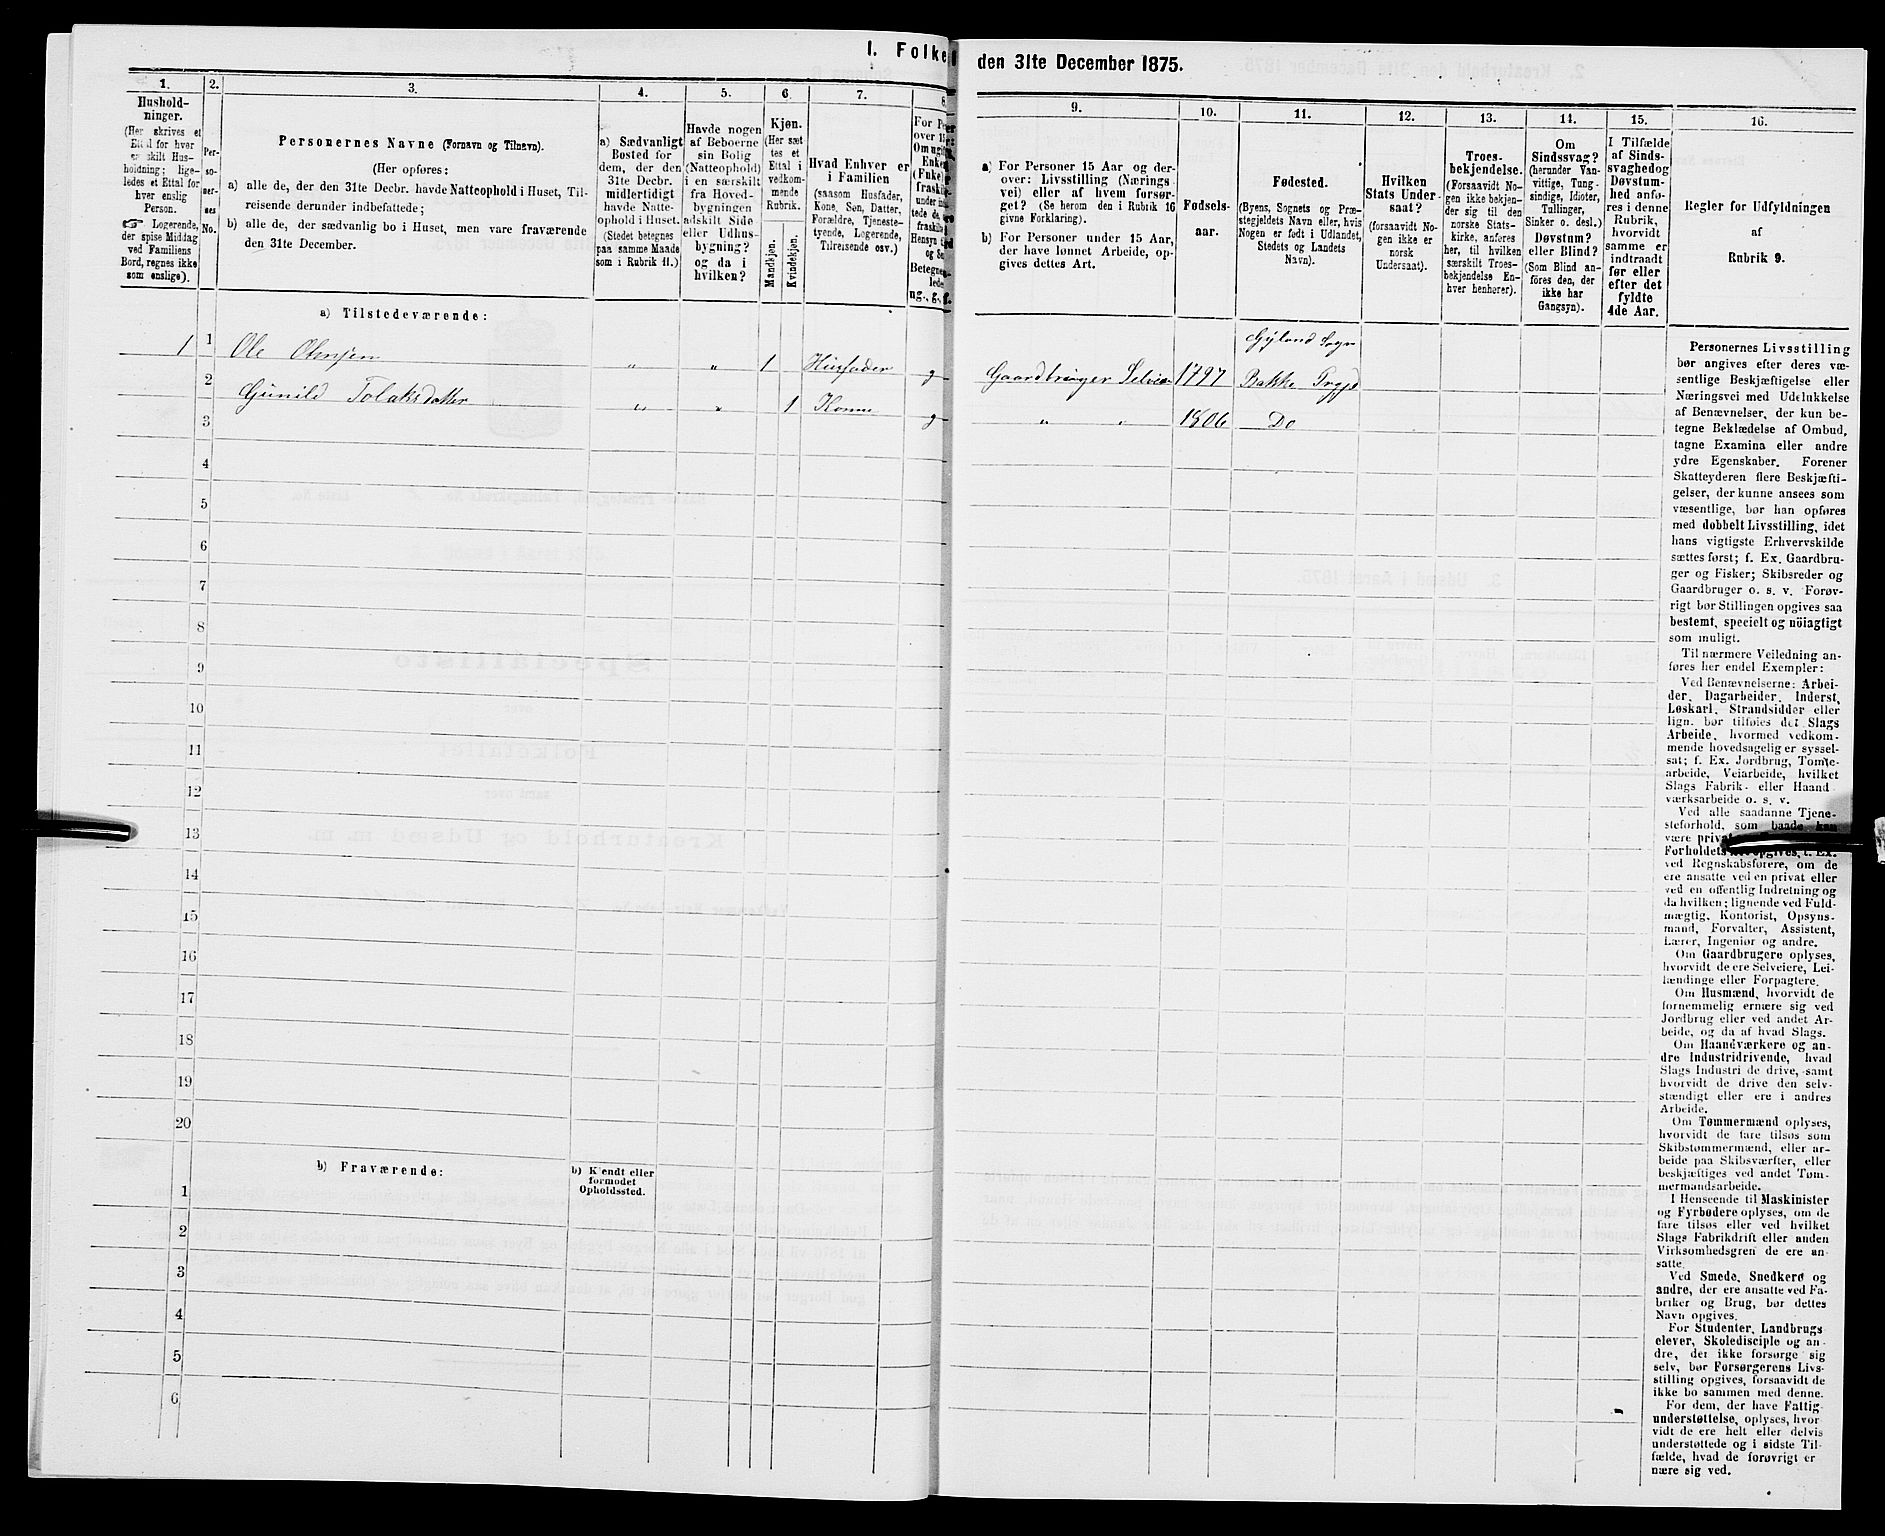 I. Folke
den 31te December 1875.
1.
Hushold-
ninger.
(Her skrives et
Ettal for hver
særskilt Hus-
holdning; lige-
ledes et Ettal for
hver enslig
Person.
☞ Logerende,
der spise Middag
ved Familiens
Bord, regnes ikke
som enslige).
2.
Per-
so-
ner-
nes
No.
3.
Personernes Navne (Fornavn og Tilnavn).
(Her opføres:
a) alle de, der den 31te Decbr. havde Natteophold i Huset, Til-
reisende derunder indbefattede;
b) alle de, der sædvanlig bo i Huset, men vare fraværende
den 31te December.
4.
a) Sædvanligt
Bosted for
dem, der den
31te Decbr.
midlertidigt
havde Natte-
ophold i Huset.
(Stedet betegnes
paa samme Maade
som i Rubrik 11.)
5.
Havde nogen
af Beboerne
sin Bolig
(Natteophold)
i en særskilt
fra Hoved-
bygningen
adskilt Side
eller Udhus-
bygning?
og da i
hvilken?
6.
Kjøn.
(Her sæt
tes et
Ettal i
vedkom-
mende
Rubrik.
Mandkjøn.
Kvindekjøn.
7.
Hvad Enhver er
i Familien
(saasom Husfader,
Kone, Søn, Datter,
Forældre, Tjeneste-
tyende, Logerende,
Tilreisende osv.)
8.
For Pe
over
Om ugi
Enke
(Enke)
fraskil
under ind
tede de,
fraskil
Hensyn
og Se
Betegne
lede
ug., g.,
9.
a) For Personer 15 Aar og der-
over: Livsstilling (Nærings
vei) eller af hvem forsør-
get? (Se herom den i Rubrik 16
givne Forklaring).
b) For Personer under 15 Aar,
der have lønnet Arbeide, op-
gives dettes Art.
10.
Fødsels-
aar.
11.
Fødested.
(Byens, Sognets og Præ-
stegjeldets Navn eller, hvis
Nogen er født i Udlandet,
Stedets og Landets
Navn).
12.
Hvilken
Stats Under
saat?
(forsaavidt No-
gen ikke er
norsk
Undersaat).
13.
Troes-
bekjendelse.
(Forsaavidt No-
gen ikke bekjen-
der sig til den
norske Stats-
kirke, anføres
her, til hvilken
særskilt Troes-
bekjendelse En-
hver henhører).
14.
Om
Sindssvag?
(herunder Van-
vittige, Tung-
sindige, Idioter,
Tullinger,
Sinker o. desl.)
Døvstum?
eller Blind?
(Som Blind an-
føres den, der
ikke har
Gangsyn).
15.
I Tilfælde
af Sinds-
svaghed og
Døvstum-
hed anfø-
res i denne
Rubrik,
hvorvidt
samme er
indtraadt
før eller
efter det
fyldte
4de Aar.
16.
Regler for Udfyldningen
af
Rubrik 9.
a) Tilstedeværende:
1 1 Ole Olensen " " 1 Husfader g Gaardbruger Selveier 1797 Gyland Sogn
Bakke
2 Gunild Tolaksdatter " " 1 Konne g " " 1806 Do
3
4
5
6
7
8
9
10
11
12
13
14
15
16
17
18
19
20
b) Fraværende:
b) Kjendt eller
formodet
Opholdssted.
1
2
3
4
5
6
Personernes Livsstilling
bør angives efter deres væ-
sentlige Beskjæftigelse eller
Næringsvei med Udelukkelse
af Benævnelser, der kun be-
tegne Beklædelse af Ombud,
tagne Examina eller andre
ydre Egenskaber. Forener
Skatteyderen flere Beskjæfti-
gelser, der kunne ansees som
væsentlige, bør han opføres
med dobbelt Livsstilling, idet
hans vigtigste Erhvervskilde
sættes først; f. Ex. Gaardbru-
ger og Fisker; Skibsreder og
Gaardbruger o. s. v. Forøv-
rigt bør Stillingen opgives saa
bestemt, specielt og nöiagtigt
som muligt.
Til nærmere Veiledning an-
føres her endel Exempler:
Ved Benævnelserne: Arbei-
der, Dagarbeider, Inderst,
Løskarl, Strandsidder eller
lign. bør tilføies det Slags
Arbeide, hvormed vedkom-
mende hovedsagelig er syssel-
sat; f. Ex. Jordbrug, Tomte-
arbeide, Veiarbeide, hvilket
Slags Fabrik- eller Haand
værksarbeide o. s. v.
Ved alle saadanne Tjene-
steforhold, som baade kan
være priva
Forholdets opgives, f. Ex.
ved Regnskabsførere, om de
ere ansatte ved en privat eller
ved en offentlig Indretning og
da hvilken; lignende ved Fuld-
mægtig, Kontorist, Opsyns-
mand, Forvalter, Assistent,
Lærer, Ingeniør og andre.
Om Gaardbrugere oplyses,
hvorvidt de ere Selveiere, Lei-
lændinge eller Forpagtere.
Om Husmænd, hvorvidt de
fornemmelig ernære sig ved
Jordbrug eller ved andet Ar-
beide, og da af hvad Slags.
Om Haandværkere og an-
dre Industridrivende, hvad
Slags Industri de drive, samt
hvorvidt de drive den selv-
stændigt eller ere i andres
Arbeide.
Om Tømmermænd oplyses,
hvorvidt de fare tilsøs som
Skibstømmermænd, eller ar-
beide paa Skibsværfter, eller
beskjæftiges ved andet Tøm-
mermandsarbeide.
I Henseende til Maskinister
og Fyrbødere oplyses, om de
fare tilsøs eller ved hvilket
Slags Fabrikdrift eller anden
Virksomhedsgren de ere an-
satte.
Ved Smede, Snedkere og
andre, der ere ansatte ved Fa-
briker og Brug, bør dettes
Navn opgives.
For Studenter, Landbrugs
elever, Skoledisciple og an-
dre, der ikke forsørge sig
selv, bør Forsørgerens Livs-
stilling opgives, forsaavidt de
ikke bo sammen med denne.
For dem, der have Fattig-
understøttelse, oplyses, hvor-
vidt de ere helt eller delvis
understøttede og i sidste Til-
fælde, hvad de forøvrigt er
nære sig ved.